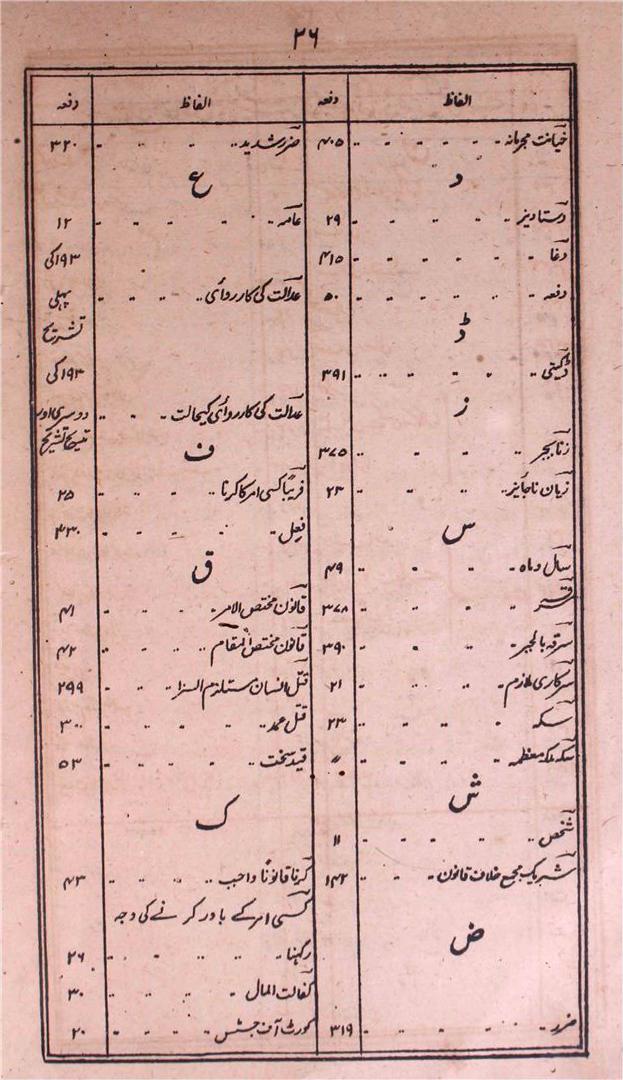 ۳۶
الفاظ دفعہ
خیانت مجرمانہ ۴۰۵
د
دستاویز ۲۹
دغا ۴۱۵
دفعہ ۵۰
ڈ
ڈکیتی ۳۹۱
ز
زنا بجبر ۳۷۵
زیان ناجایز ۲۳
س
سال و ماہ ۴۹
سرقہ ۳۷۸
سرقہ بالجبر ۳۹۰
سرکاری ملازم ۲۱
سکہ ۲۳
سکہ ملکہ معظمہ 〃
ش
شخص ۱۱
شریک مجمع خلاف قانون ۱۴۲
ض
ضرر ۳۱۹
الفاظ دفعہ
ضرر شدید ۳۲۰
ع
عامہ ۱۲
۱۹۳ کی
عدالت کی کارروائی پہلی
تشریح
۱۹۳ کی
عدالت کی کارروائی کیحالت دوسری اور
تیسری تشریح
ف
فریباً کسی امر کا کرنا ۲۵
فعل ۳۳۰
ق
قانون مختص الامر ۴۱
قانون مختص المقام ۴۲
قتل انسان مستلزم السزا ۲۹۹
قتل عمد ۳۰۰
قید سخت ۵۳
ک
کرنا قانوناً واجب ۴۳
کسی امر کے باور کرنے کی وجہ
رکہنا ۲۶
کفالت المال ۳۰
کورٹ آف جسٹس ۲۰